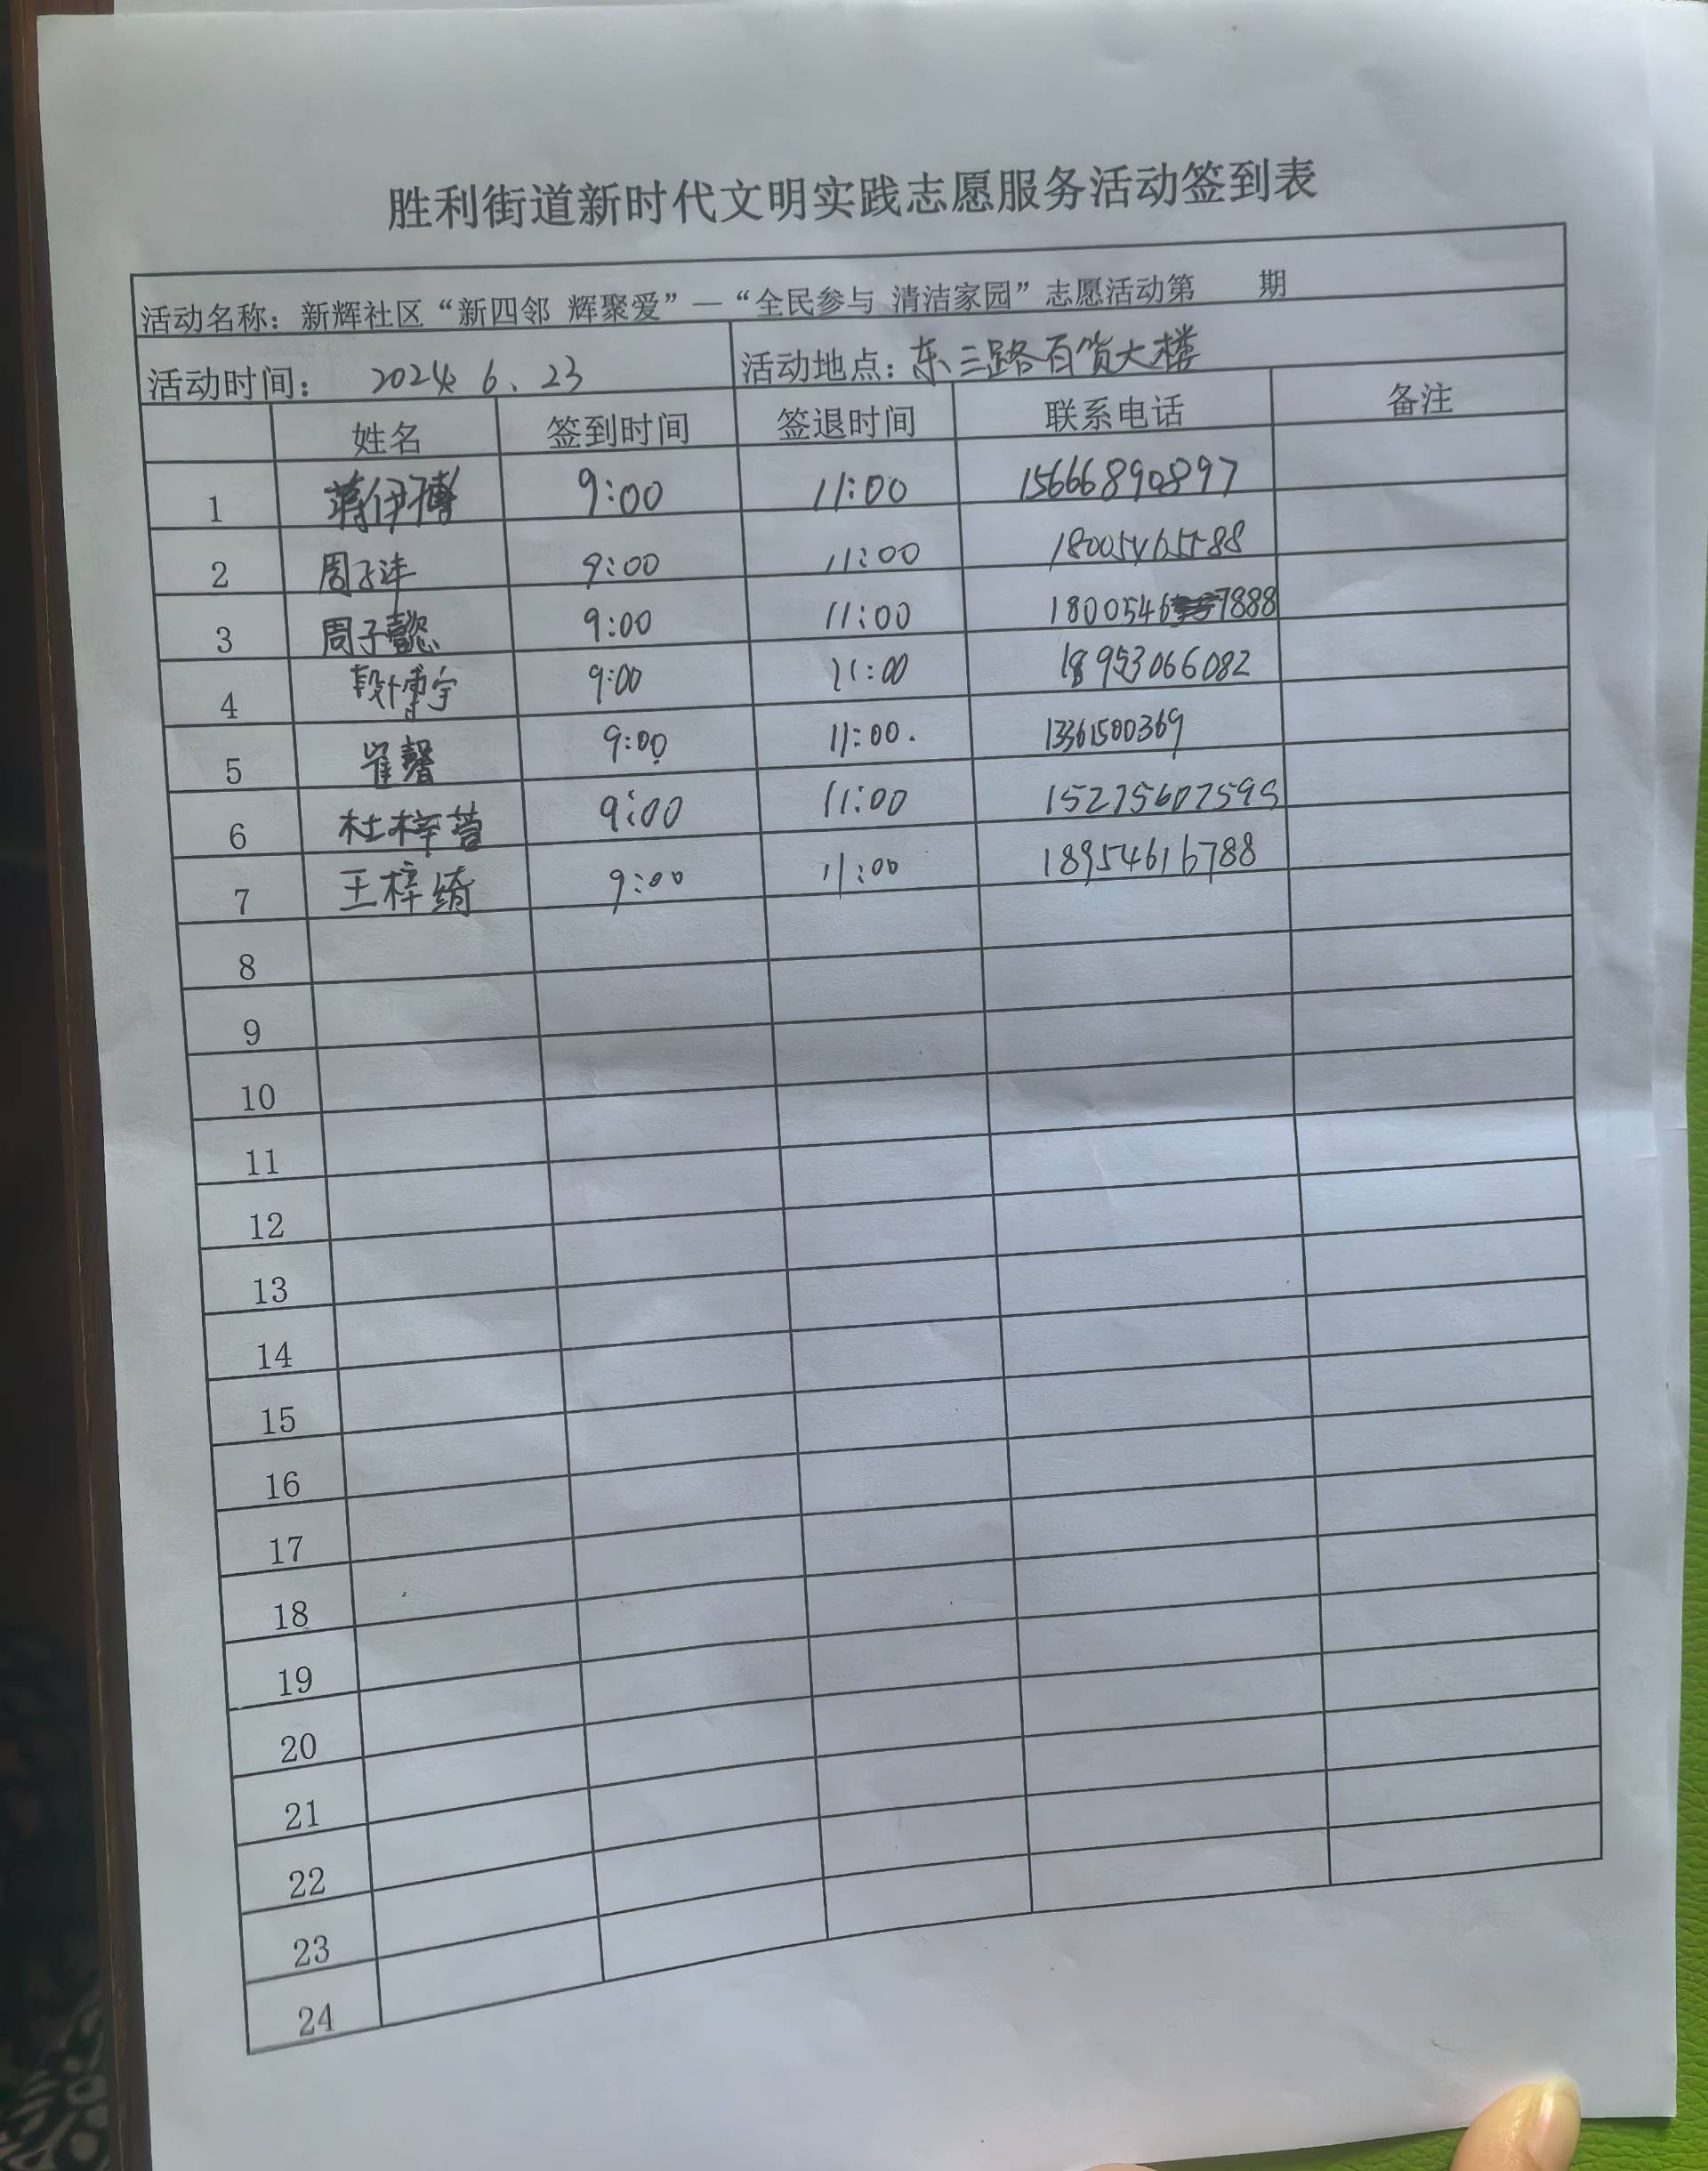 胜利街道新时代文明实践志愿服务活动签到表
活动名称：新辉社区“新四邻 辉聚爱”—“全民参与 清洁家园”志愿活动第 期
活动时间： 2024. 6. 23 活动地点：东三路百货大楼
姓名 签到时间 签退时间 联系电话 备注
1 蒋伊博 9:00 11:00 15666890897
2 周子沣 9:00 11:00 18005465588
3 周子懿 9:00 11:00 18005467888
4 段博宇 9:00 11:00 18953066082
5 崔馨 9:00 11:00. 13361500369
6 杜梓萱 9:00 11:00 15275607595
7 王梓绮 9:00 11:00 18954616788
8
9
10
11
12
13
14
15
16
17
18
19
20
21
22
23
24